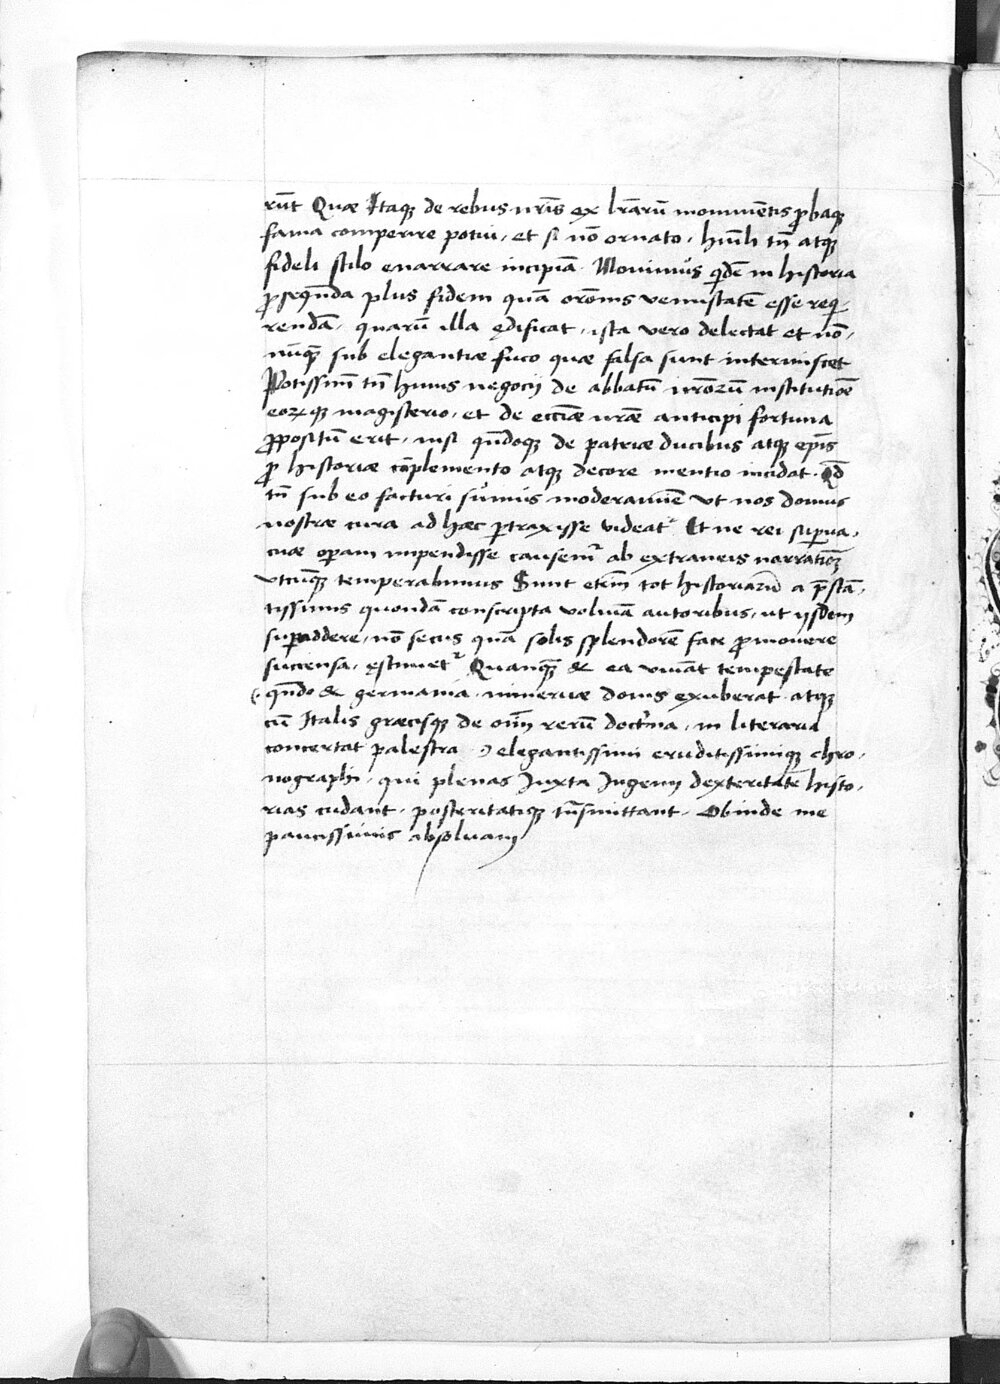 rūt Quæ Itaq; de rebus nr̄is ex lr̄arū monumētis ꝓbaq;
fama comperire potui, et si nō ornato, humĭli tn̄ atq;
fideli stilo enarrare incipiā. Monimus qdē in historia
ꝓseqn̄da plus fidem quā orōnis venustatē esse requi-
rendā, quarū illa ędificat, ista vero delectat et nō-
nūq̄ sub elegantiæ fuco quæ falsa sunt intermiscet
Potissimū tn̄ huius negocij de abbatū nr̄orū institutiōe
eorūq; magisterio, et de eccīæ nr̄æ ancipiti fortuna
ꝓpositū erit, nisi qn̄doq; de patriæ ducibus atq; ep̄is
ꝓ historiæ cōplemento atq; decore mentio incidat. Qd̄
tn̄ sub eo facturi sumus moderamīe vt nos domus
nostræ cura ad hæc ꝑtraxisse videat᷑ Et ne rei supua-
cuæ opam impendisse causem᷑ ab extraneis narratiōiƺ
vtcūq; temperabimus Sunt eteīm tot historiarū a pr̄stā-
tissimis quondā conscripta volumīa autoribus, ut ijsdem
supaddere, nō secus quā solis splendorē face ꝓmovere
succensa, ęstimet᷑ Quanq̄ & ea vivāt tempestate
( qn̄do & germania, minervæ donis exuberat atq;
cū Italis græcisq; de oīm rerū doctrina, in literaria
concertat palestra ) elegantissimi eruditissimiq; chro-
nographi, qui plenas Iuxta Ingenij dexteritatē histo-
rias cudant, posteritatiq; tn̄smittant. Obinde me
paucissimis absoluam